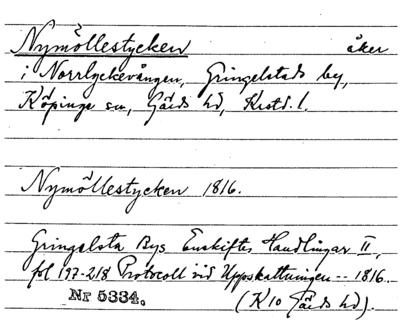 Nymöllestycken åker
i Norrlyckevången, Gringelstads by,
Köpinge sn, Gärds hd, Krstd. l.
Nymöllestycken 1816.
Gringelsta Bys Enskiftes Handlingar II,
fol 197-218 Protocoll vid Uppskattningen -- 1816.
Nr 5334. (K 10 Gärds hd).